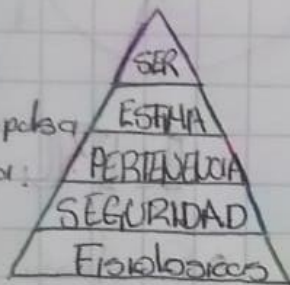 SER
ESTIMA
PERTENENCIA
SEGURIDAD
Fisiologicas